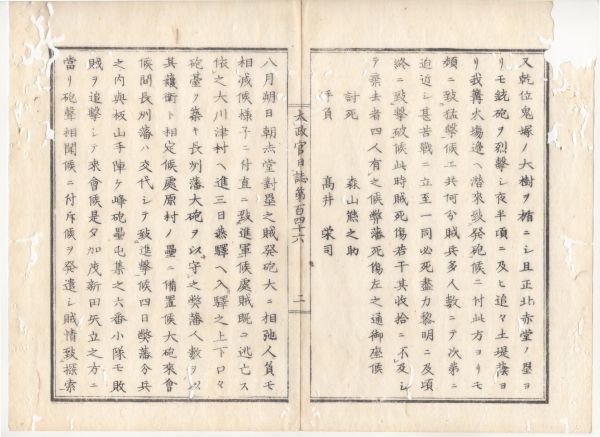 又乾位鬼塚ノ大樹ヲ楯ニシ且正北赤堂ノ壘ヨ
リモ銃砲ヲ烈撃シ夜半頃ニ及ヒ追々土堤蔭ヨ
リ我篝火場邊ヘ潜來致發砲候ニ付此方ヨリモ
頻ニ致猛撃候工共何分賊兵多人數ニテ次第ニ
迫近シ甚苦戰ニ立至一同必死盡力黎明ニ及頃
終ニ致撃破候此時賊死傷若干其收拾ニ不及シ
テ棄去者四人有之候弊藩死傷左之通御座候
討死 森山熊之助
手負 高井 榮司
太政官日誌第百四十六 二
八月朔日朝赤堂對壘之賊發砲大ニ相弛人員モ
相減候様子ニ付直ニ致進軍候處賊既ニ逃亡ス
依之大川津村ヘ進三日燕驛ヘ入驛之上下口々
砲臺ヲ築キ長州藩大砲ヲ以守之弊藩人數ヲ以
其護衛ト相定候處原村ノ壘ニ備置候大砲來會
候間長州藩ハ交代シテ致進撃候四日弊藩分兵
之内與板山手陣ケ峰砲壘屯集之六番小隊モ敗
賊ヲ追撃シテ來會候是夕加茂新田矢立之方ニ
當リ砲聲相聞候ニ付斥候ヲ發遣シ賊情致探索